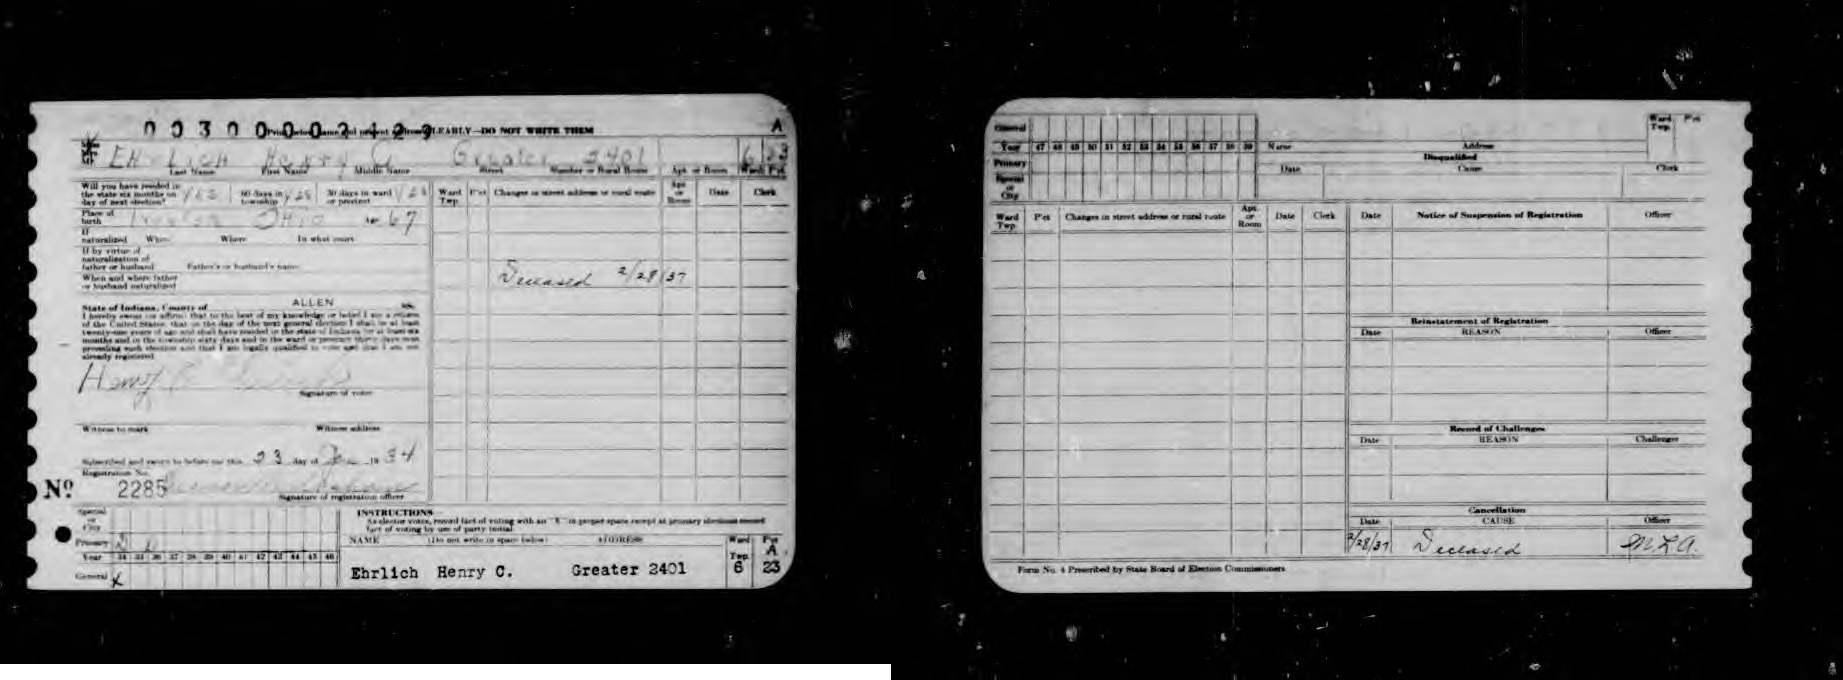 00300002129
Print below name and present address CLEARLY—DO NOT WRITE THEM
A
Miss
Mrs.
Mr.
EHRLICH Henry C Greater 2401 6 23
Last Name First Name Middle Name Street Number or Rural Route Apt. or Room Ward Pct
Will you have resided in
the state six months on
day of next election? Yes
60 days in
township Yes
30 days in ward
or precinct Yes
Place of
birth Ohio Age 67
If
naturalized When Where In what court
If by virtue of
naturalization of
father or husband Father's or husband's name
When and where father
or husband naturalized
State of Indiana, County of ALLEN ss.
I hereby swear (or affirm) that to the best of my knowledge or belief I am a citizen
of the United States, that on the day of the next general election I shall be at least
twenty-one years of age and shall have resided in the state of Indiana for at least six
months and in the township sixty days and in the ward or precinct thirty days next
preceding such election and that I am legally qualified to vote and that I am not
already registered
Henry C
Signature of voter
Witness to mark Witness address
Subscribed and sworn to before me this 23 day of 19 34
Registration No.
No 2285
Signature of registration officer
Ward
Twp.
P'ct
Changes in street address or rural route
Apt.
or
Room
Date
Clerk
Deceased 2/28/37
Special
or
City
Primary D
Year 34 35 36 37 38 39 40 41 42 43 44 45 46
General X
INSTRUCTIONS
As elector votes, record fact of voting with an "X" in proper space except at primary elections record
fact of voting by use of party initial.
NAME (Do not write in space below) ADDRESS
Ward
Twp.
6
Pct
A
23
Ehrlich Henry C. Greater 2401
General
Year 47 48 49 50 51 52 53 54 55 56 57 58 59
Primary
Special
or
City
Name Address
Ward
Twp.
P'ct
Disqualified
Date Cause Clerk
Ward
Twp.
P'ct
Changes in street address or rural route
Apt.
or
Room
Date
Clerk
Date Notice of Suspension of Registration Officer
Reinstatement of Registration
Date REASON Officer
Record of Challenges
Date REASON Challenger
Cancellation
Date CAUSE Officer
2/28/37 Deceased M.L.A.
Form No. 4 Prescribed by State Board of Election Commissioners